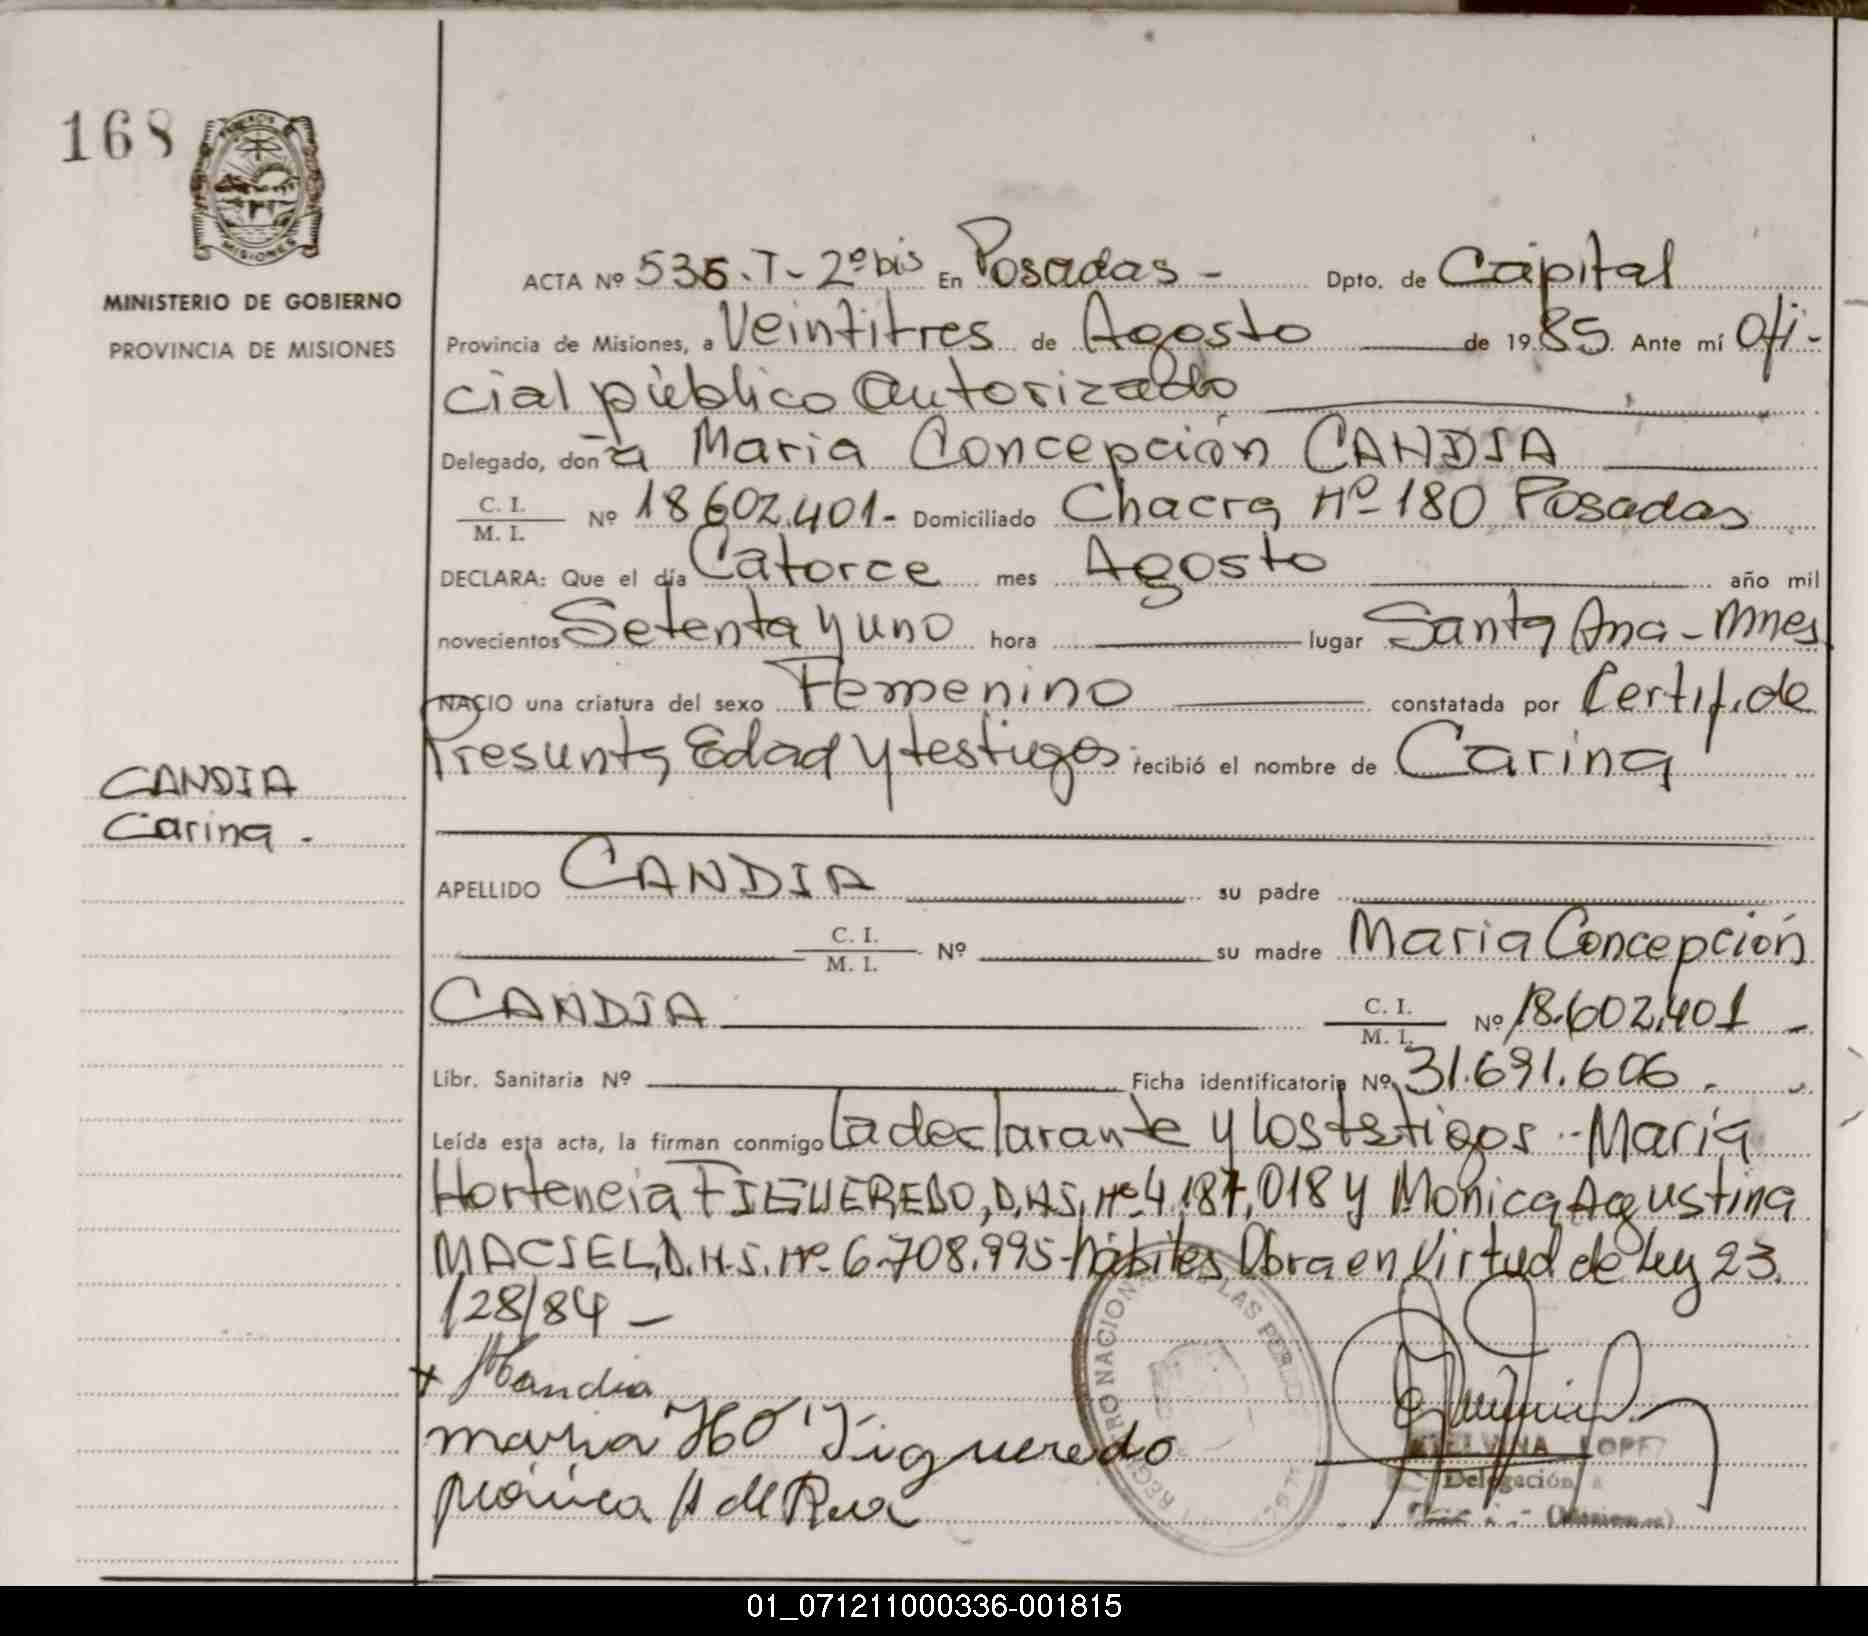 168
MISIONES
MINISTERIO DE GOBIERNO
PROVINCIA DE MISIONES
ACTA Nº 535.T-2º bis En Posadas - Dpto. de Capital
Provincia de Misiones, a Veintitres de Agosto de 1985. Ante mí Ofi-
cial público autorizado
Delegado, doña Maria Concepción CANDIA
C. I.
M. I. Nº 18602.401- Domiciliado Chacra Nº 180 Posadas
DECLARA: Que el día Catorce mes Agosto año mil
novecientos Setenta y uno hora lugar Santa Ana - Mnes
NACIO una criatura del sexo Femenino constatada por Certif. de
Presunta Edad y testigos recibió el nombre de Carina
CANDIA
Carina -
APELLIDO CANDIA su padre
C. I.
M. I. Nº su madre Maria Concepción
CANDIA C. I.
M. I. Nº 18.602.401 -
Libr. Sanitaria Nº Ficha identificatoria Nº 31.691.606.
Leída esta acta, la firman conmigo la declarante y los testigos -- María
Hortencia FIGUEREDO, D.N.I. Nº 4.187.018 y Monica Agustina
MACIEL, D.N.I. Nº 6.708.995- hábiles Obra en Virtud de Ley 23.
128/84 -
x Candia
maria Ho Figueredo
Mónica A de
REGISTRO NACIONAL LAS PERSO
LOPEZ
Delegación
(Misiones)
01_071211000336-001815